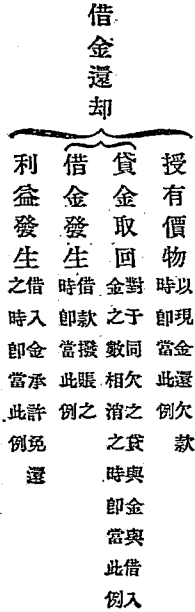 借金還却
授有價物
以現金還欠款
時即當此例
貸金取回
對于同欠之貸與金與借入
金之數相消之時即當此例
借金發生
借款撥賬之
時即當此例
利益發生
借入金承許免還
之時即當此例